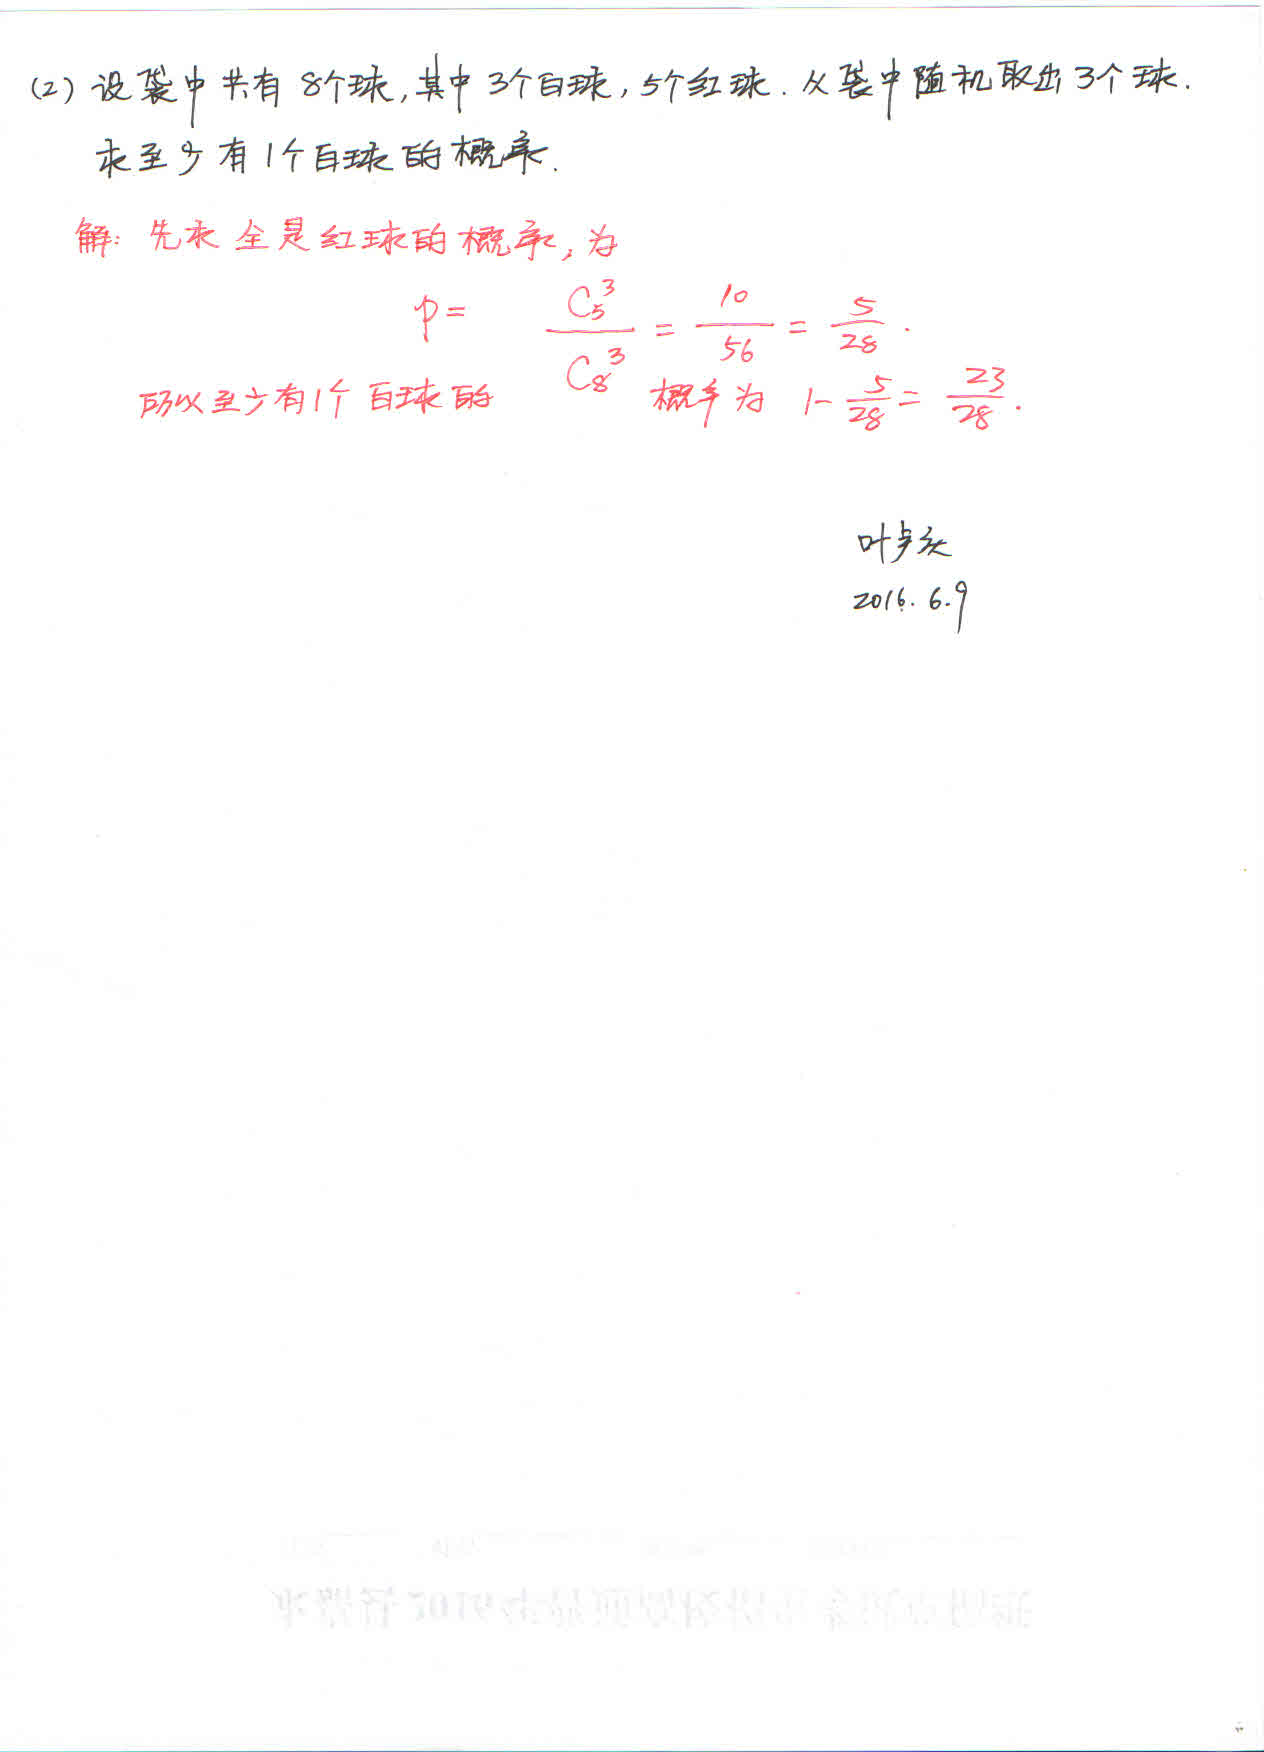 (2) 设袋中共有8个球,其中3个白球,5个红球.从袋中随机取出3个球.
求至少有1个白球的概率.
解:先求全是红球的概率,为
P= C₅³/C₈³ = 10/56 = 5/28.
所以至少有1个白球的概率为 1-5/28=23/28.
叶卢庆
2016.6.9